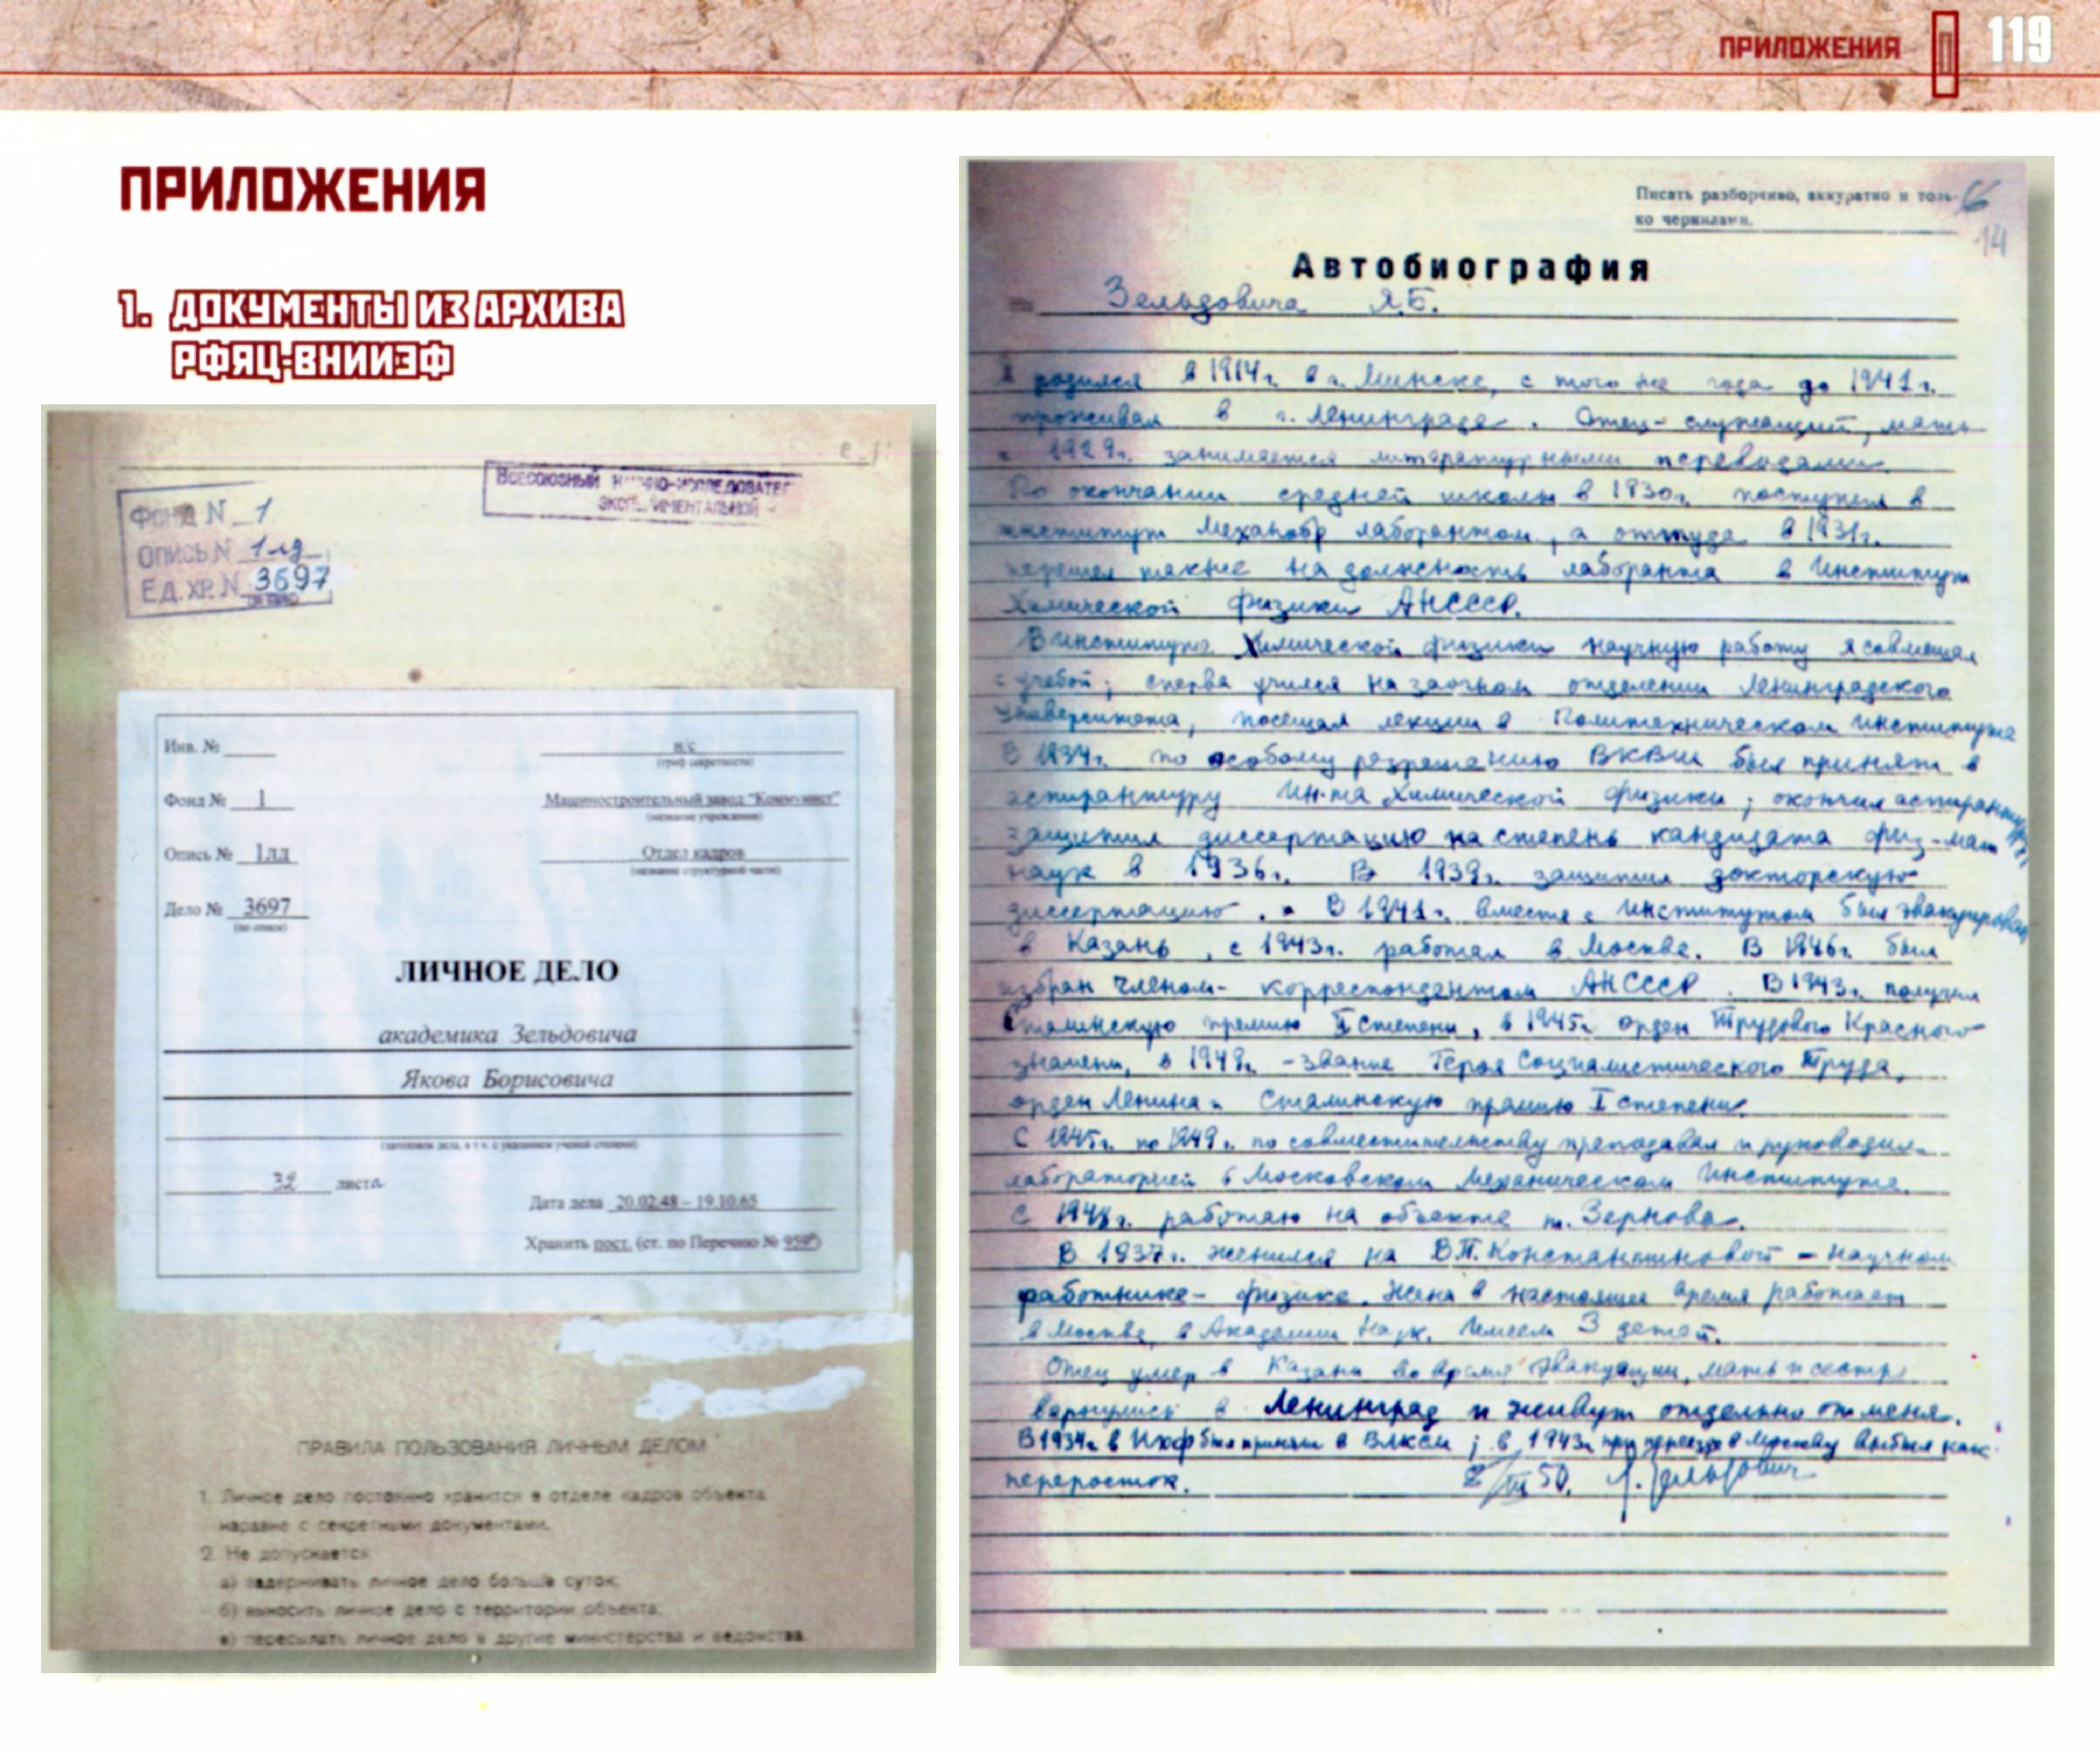 ПРИЛОЖЕНИЯ 119
ПРИЛОЖЕНИЯ
1. ДОКУМЕНТЫ ИЗ АРХИВА
РФЯЦ-ВНИИЭФ
ВСЕСОЮЗНЫЙ НАУЧНО-ИССЛЕДОВАТЕЛ
ЭКСПЕРИМЕНТАЛЬНОЙ
ФОНД N 1
ОПИСЬ N 1лд
ЕД. ХР. N 3697
Инв. № н/с
(гриф секретности)
Фонд № 1 Машиностроительный завод "Коммунист"
(название учреждения)
Опись № 1лд Отдел кадров
(название структурной части)
Дело № 3697
(по описи)
ЛИЧНОЕ ДЕЛО
академика Зельдовича
Якова Борисовича
(заголовок дела, в т.ч. с указанием ученой степени)
32 листа
Дата дела 20.02.48 – 19.10.65
Хранить пост. (ст. по Перечню № 959)
ПРАВИЛА ПОЛЬЗОВАНИЯ ЛИЧНЫМ ДЕЛОМ
1. Личное дело постоянно хранится в отделе кадров объекта
наравне с секретными документами.
2. Не допускается:
а) задерживать личное дело больше суток;
б) выносить личное дело с территории объекта;
в) пересылать личное дело в другие министерства и ведомства.
Писать разборчиво, аккуратно и толь-
ко чернилами.
6
14
Автобиография
Зельдовича Я.Б.
Я родился в 1914г. в г. Минске, с того же года до 1941г.
проживал в г. Ленинграде. Отец - служащий, мать
с 1929г. занимается литературными переводами.
По окончании средней школы в 1930г. поступил в
институт Механобр лаборантом, а оттуда в 1931г.
перешел также на должность лаборанта в Институт
Химической физики АНСССР.
В институте Химической физики научную работу я совмещал
с учебой; сперва учился на заочном отделении Ленинградского
Университета, посещал лекции в Политехническом институте
В 1934г. по особому разрешению ВКВШ был принят в
аспирантуру Ин-та Химической физики; окончил аспирантуру и
защитил диссертацию на степень кандидата физ-мат
наук в 1936г. В 1939г. защитил докторскую
диссертацию. В 1941г. вместе с Институтом был эвакуирован
в Казань, с 1943г. работал в Москве. В 1946г. был
избран членом-корреспондентом АНСССР. В 1943г. получил
Сталинскую премию II степени, в 1945г. орден Трудового Красного
знамени, в 1949г. - звание Героя Социалистического Труда,
орден Ленина и Сталинскую премию I степени.
С 1945г. по 1949г. по совместительству преподавал и руководил
лабораторией в Московском Механическом Институте.
С 1948г. работаю на объекте т. Зернова.
В 1937г. женился на В.П. Константиновой - научном
работнике - физике. Жена в настоящее время работает
в Москве, в Академии Наук. Имеем 3 детей.
Отец умер в Казани во время эвакуации, мать и сестра
вернулись в Ленинград и живут отдельно от меня.
В 1934г. в ИХФ был принят в ВЛКСМ; в 1943г. при переезде в Москву выбыл как
переросток. 2/III 50. Я. Зельдович